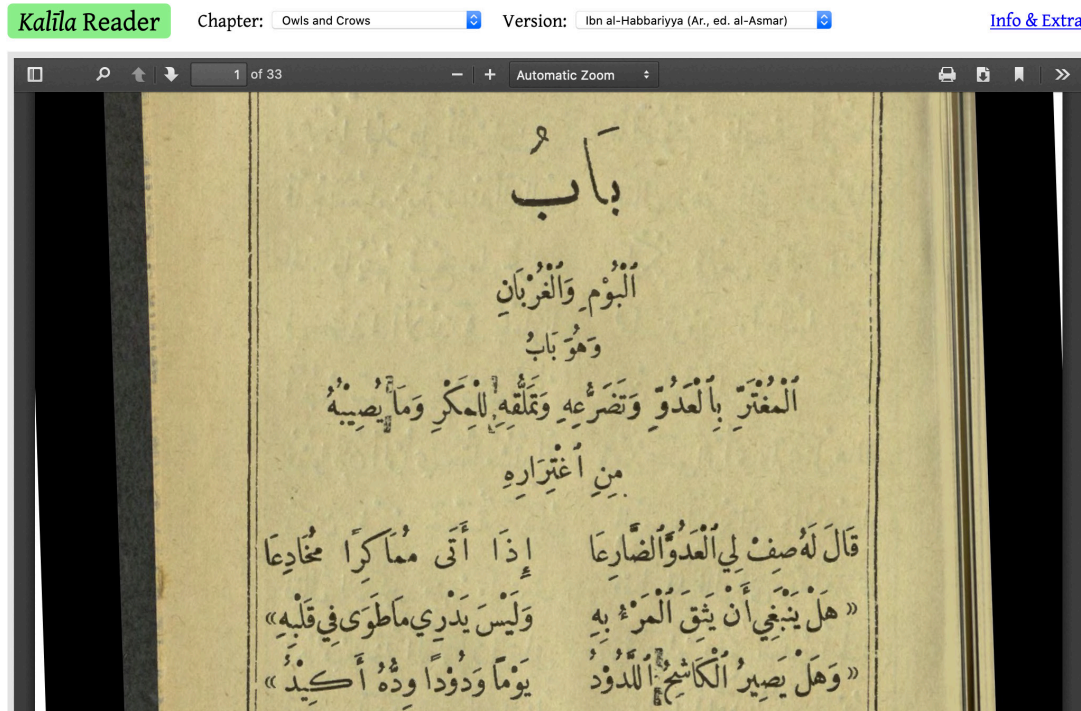 Kalīla Reader Chapter: Owls and Crows Version: Ibn al-Habbariyya (Ar., ed. al-Asmar) Info & Extra
1 of 33 Automatic Zoom
بَابُ
اَلْبُوْمِ وَالْغُرْبَانِ
وَهُوَ بَابُ
اَلْمُغْتَرِّ بِالْعَدُوِّ وَتَضَرُّعِهِ وَتَمَلُّقِهِ لِلْمَكْرِ وَمَا يُصِيْبُهُ
مِنِ اغْتِرَارِهِ
قَالَ لَهُ صِفْ لِي اَلْعَدُوَّ اَلضَّارِعَا إِذَا أَتَى مُمَاكِرًا مُخَادِعَا
« هَلْ يَنْبَغِي أَنْ يَثِقَ اَلْمَرْءُ بِهِ وَلَيْسَ يَدْرِي مَا طَوَى فِي قَلْبِهِ »
« وَهَلْ يَصِيرُ اَلْكَاشِحُ اَللَّدُوْدُ يَوْمًا وَدُوْدًا وِدُّهُ أَكِيْدُ »